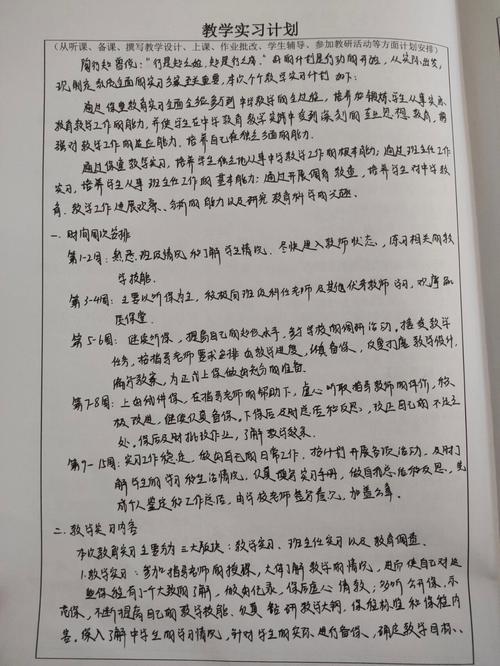 教学实习计划
（从听课、备课、撰写教学设计、上课、作业批改、学生辅导、参加教研活动等方面计划安排）
陶行知曾说："行是知之始，知是行之成。"好的计划是行动的开始，从实际出发，
现制定教学实习计划如下：
通过保质教育实习全面全程参与到中学教学的全过程，培养和锻炼学生从事实际
教育教学工作的能力，并使学生在中学教育教学实践中受到深刻的专业思想教育，增
强对教学工作的适应能力，培养自己在独立方面的能力。
通过课堂教学实习，培养学生独立地从事中学教学工作的根本能力；通过班主任工作
实习，培养学生从事班主任工作的基本能力；通过开展调查，培养学生对中学教
育、教学工作进展观察、分析的能力以及研究教育科学的兴趣。
一、时间周次安排
第1-2周：熟悉班级情况和了解学生情况，尽快进入教师状态，练习相关的教
学技能。
第3-4周：主要以听课为主，积极向班级科任老师及其他优秀教师学习，观摩品
质课堂。
第5-6周：继续听课，提高自己的知识水平，参加学校的调研活动。接受教学
任务，按指导老师要求安排教学进度，认真备课，反复打磨教学设计，
编写教案，为正式上课做出充分的准备。
第7-8周：上课和听课，在指导老师的帮助下，虚心听取指导教师的评价，积
极改进，继续认真备课。下课后及时总结和反思，改正自己的不足之
处。课后及时批改作业，了解教学效果。
第9-15周：实习工作稳定，做好自己的日常工作。按计划开展各项活动，及时了
解学生的学习和生活情况，认真撰写实习手册，做自我总结和反思，完
成个人鉴定和工作总结，由学校老师签署意见，加盖公章。
二、教学实习内容
本次教育实习主要分为三大版块：教学实习、班主任实习以及教育调查。
1.教学实习：参加指导老师的授课，大体了解教学的情况，进而使自己对这
些课程有个大致的了解，做好记录，课后虚心请教；多听公开课、示
范课，不断提高自己的教学技能。认真钻研教学大纲、课程标准和课程内
容。深入了解中学生的学习情况，针对学生的实际进行备课，确定教学目标、